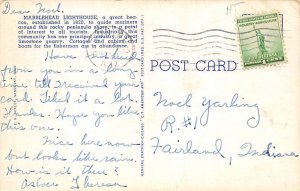 Dear Noel.
MARBLEHEAD LIGHTHOUSE, a great bea-
con, established in 1820, to guide mariners
around this rocky peninsula shore, is a point
of interest to all tourists. Industrially this
community has one principal industry, a great
limestone quarry. Cottages and cabins and
boats for the fisherman are in abundance.
Have not heard
from you in a long
time till I received your
card. Liked it a lot.
Thanks. Hope you like
this one.
Nice here now
but looks like rain.
How is it there?
POST CARD
Noel Yarling
R. #1
Fairland, Indiana